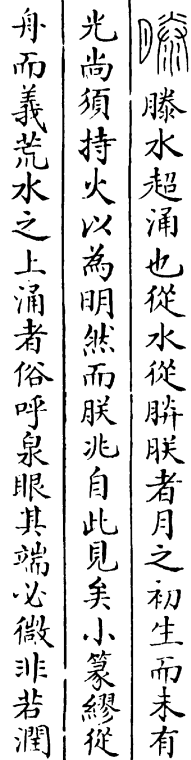 滕水超涌也從水從䏍朕者月之初生而未有
光尚須持火以為明然而朕兆自此見矣小篆繆從
舟而義荒水之上涌者俗呼泉眼其端必微非若澗